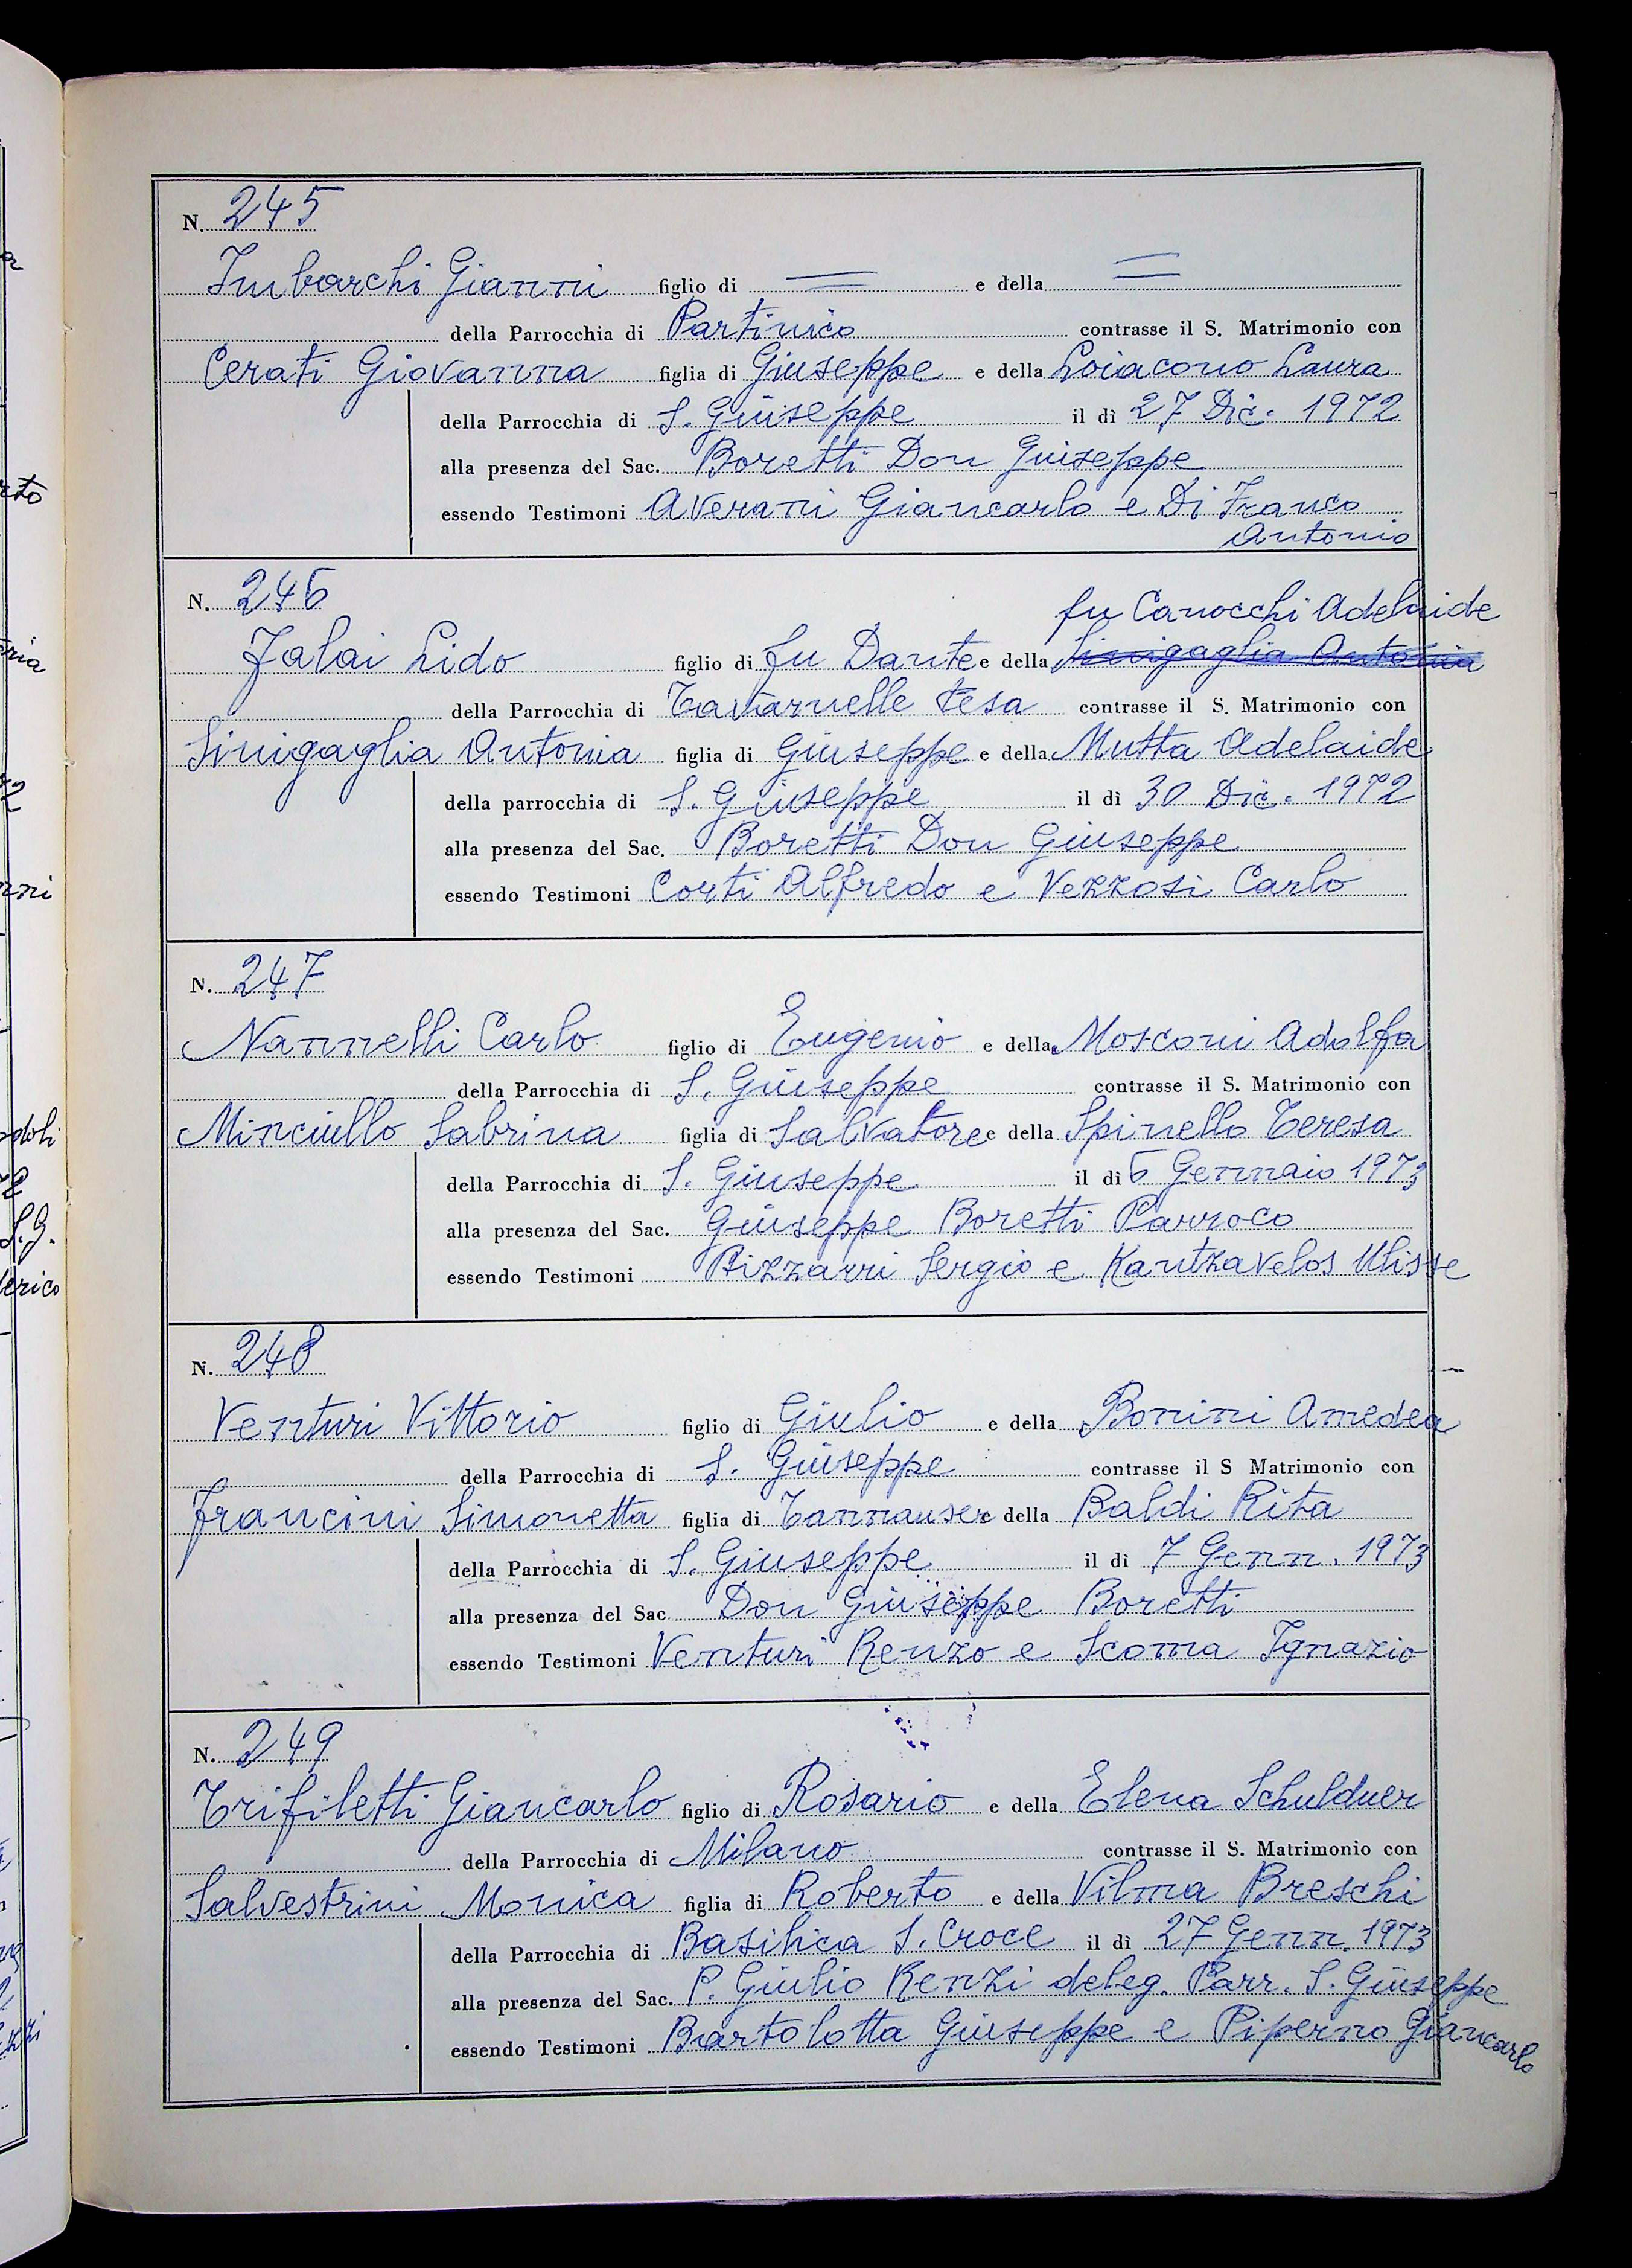 N. 245
Imbarchi Gianni figlio di = e della =
della Parrocchia di Partinico contrasse il S. Matrimonio con
Cerati Giovanna figlia di Giuseppe e della Loiacono Laura
della Parrocchia di S. Giuseppe il dì 27 Dic. 1972
alla presenza del Sac. Boretti Don Giuseppe
essendo Testimoni Averani Giancarlo e Di Franco
Antonio
N. 246
fu Canocchi Adelaide
Falai Lido figlio di fu Dante e della Sinigaglia Antonia
della Parrocchia di Tavarnelle Pesa contrasse il S. Matrimonio con
Sinigaglia Antonia figlia di Giuseppe e della Mutta Adelaide
della parrocchia di S. Giuseppe il dì 30 Dic. 1972
alla presenza del Sac. Boretti Don Giuseppe
essendo Testimoni Corti Alfredo e Vezzosi Carlo
N. 247
Nannelli Carlo figlio di Eugenio e della Mosconi Adolfa
della Parrocchia di S. Giuseppe contrasse il S. Matrimonio con
Minciullo Sabrina figlia di Salvatore e della Spinello Teresa
della Parrocchia di S. Giuseppe il dì 6 Gennaio 1973
alla presenza del Sac. Giuseppe Boretti Parroco
essendo Testimoni Pizzarri Sergio e Kantzavelos Ulisse
N. 248
Venturi Vittorio figlio di Giulio e della Bonini Amedea
della Parrocchia di S. Giuseppe contrasse il S Matrimonio con
Francini Simonetta figlia di Tannauser e della Baldi Rita
della Parrocchia di S. Giuseppe il dì 7 Genn. 1973
alla presenza del Sac Don Giuseppe Boretti
essendo Testimoni Venturi Renzo e Scoma Ignazio
N. 249
Trifiletti Giancarlo figlio di Rosario e della Elena Schulduer
della Parrocchia di Milano contrasse il S. Matrimonio con
Salvestrini Monica figlia di Roberto e della Vilma Breschi
della Parrocchia di Basilica S. Croce il dì 27 Genn. 1973
alla presenza del Sac. P. Giulio Renzi deleg. Parr. S. Giuseppe
essendo Testimoni Bartolotta Giuseppe e Piperno Giancarlo